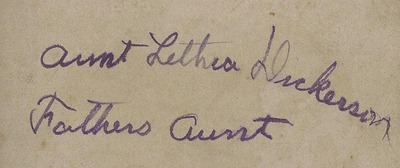 Aunt Lethea Dickerson
Fathers Aunt